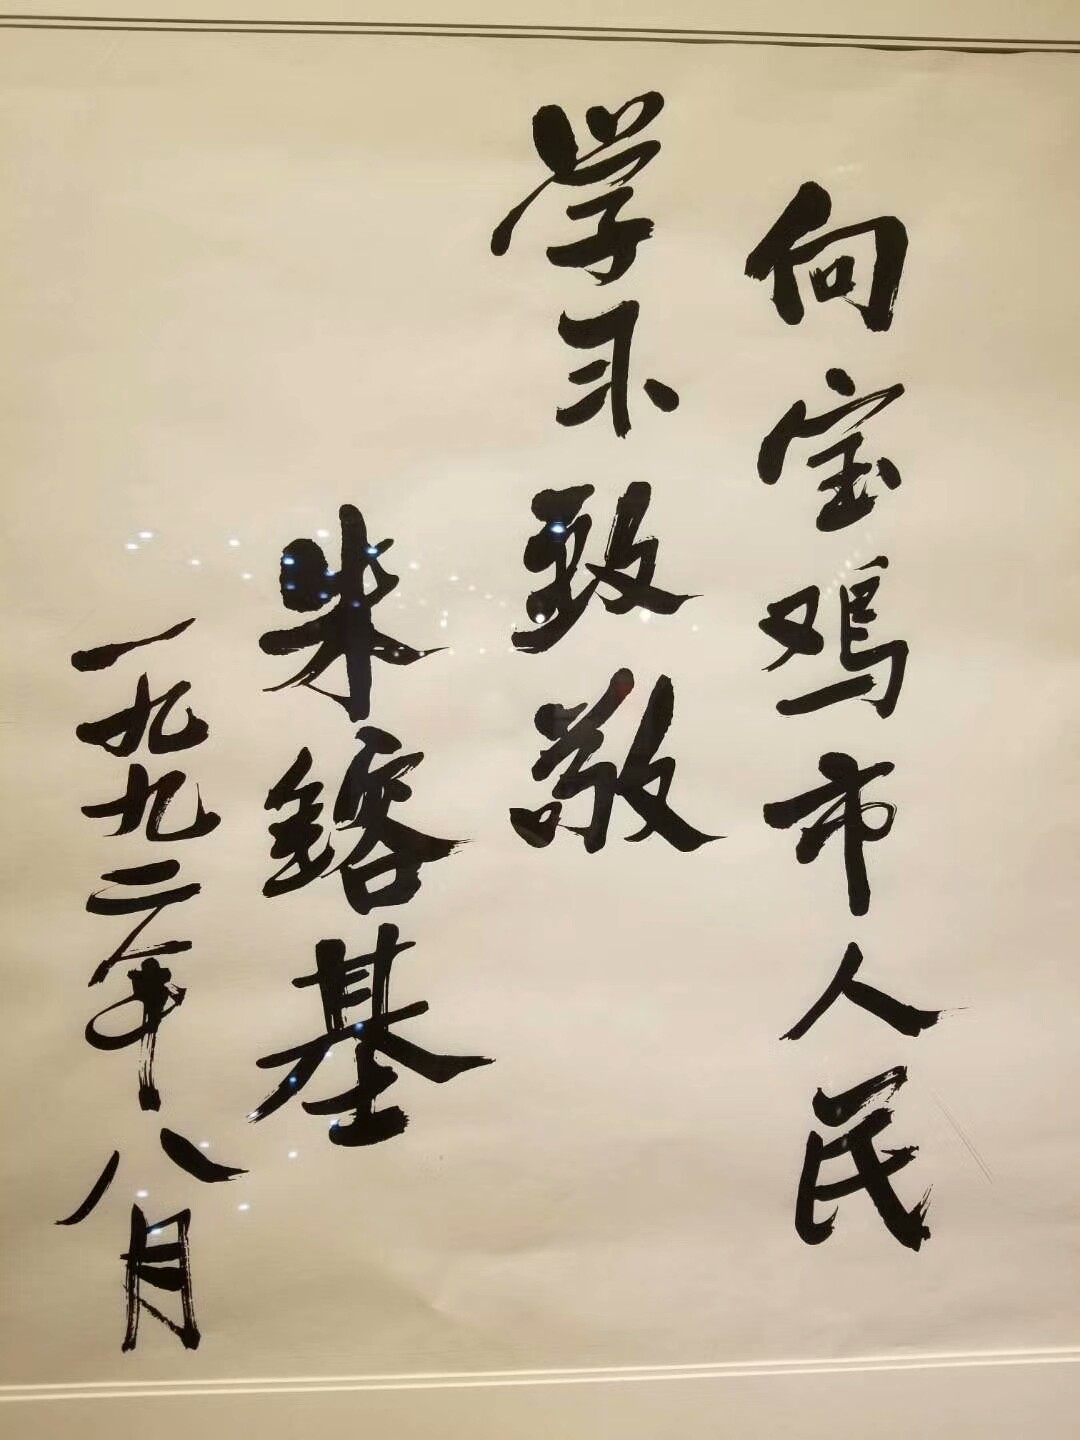 向宝鸡市人民
学习致敬
朱镕基
一九九二年八月